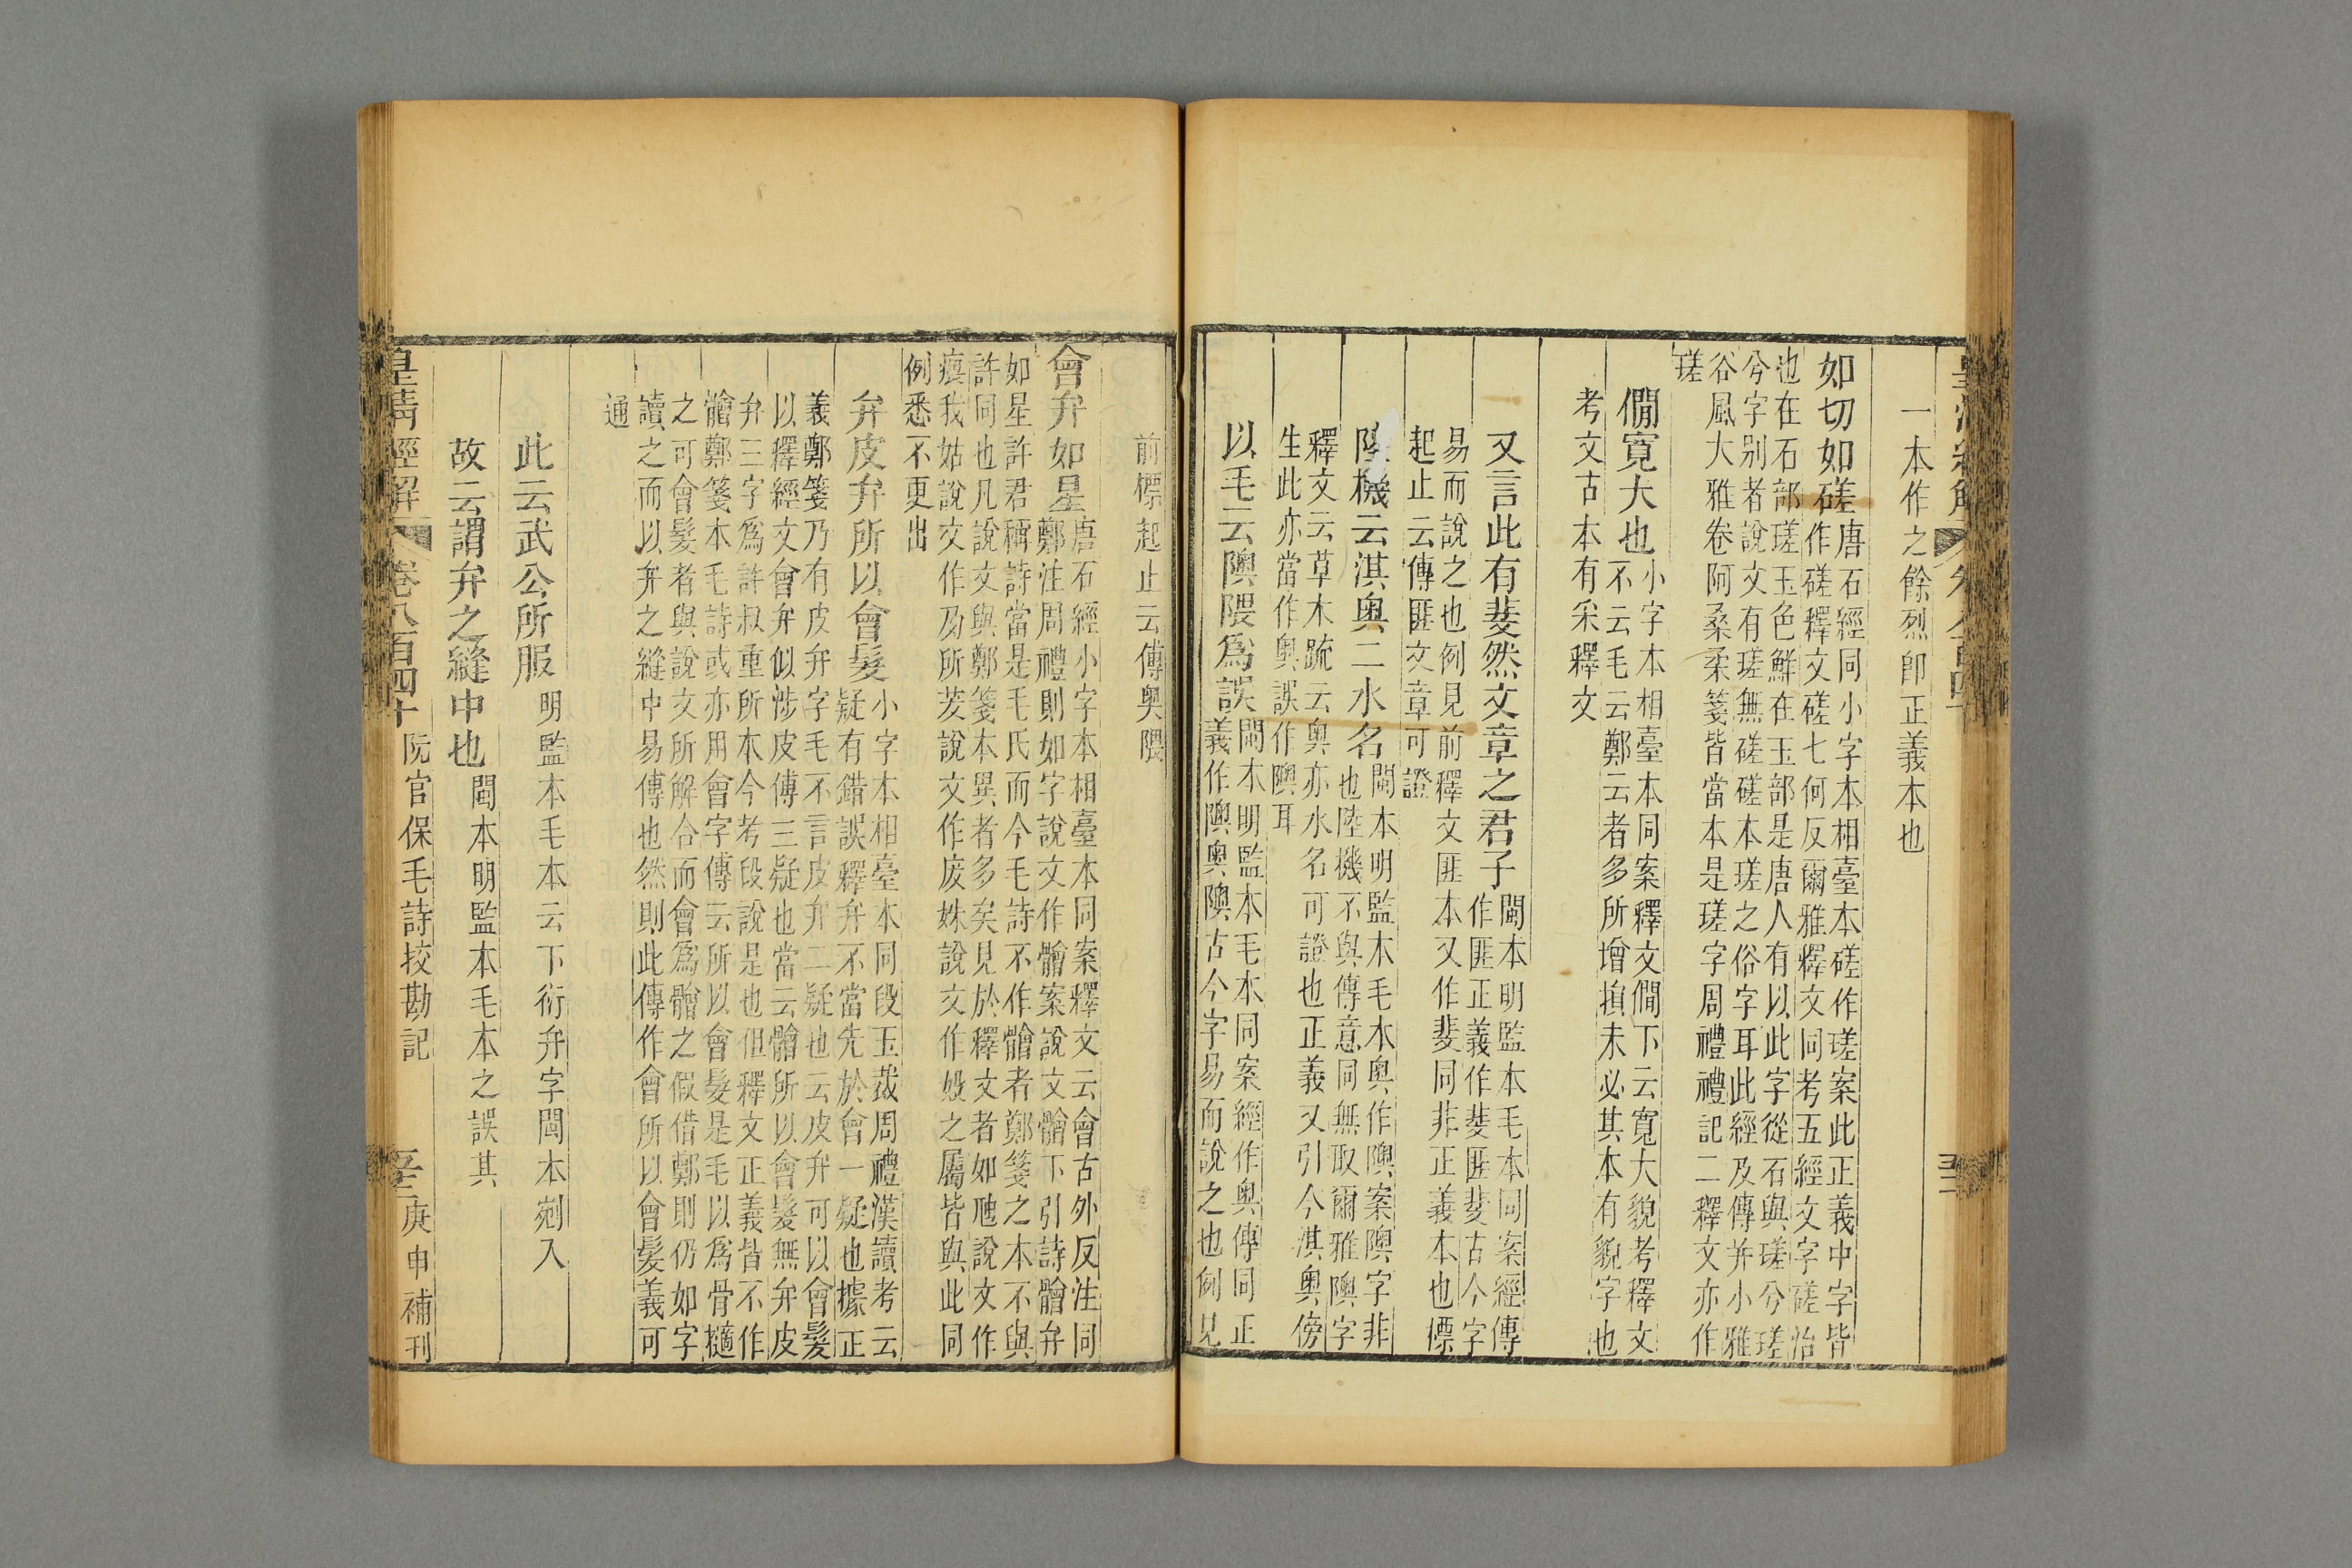 一本作之餘烈卽正義本也
如切如磋
唐石經同小字本相臺本磋作瑳案此正義中字皆
作磋釋文磋七何反爾雅釋文同考五經文字磋治
也在石部瑳玉色鮮在玉部是唐人有以此字從石與瑳兮瑳
兮字别者說文有瑳無磋磋本瑳之俗字耳此經及傳并小雅
谷風大雅卷阿桑柔箋皆當本是瑳字周禮禮記二釋文亦作
瑳
僩寛大也
小字本相臺本同案釋文僩下云寬大貌考釋文
不云毛云鄭云者多所增損未必其本有貌字也
考文古本有采釋文
又言此有斐然文章之君子
閩本明監本毛本同案經傳
作匪正義作斐匪斐古今字
易而說之也例見前釋文匪本又作斐同非正義本也標
起止云傳匪文章可證
陸機云淇奥二水名
閩本明監本毛本奥作隩案隩字非
也陸機不與傳意同無取爾雅隩字
釋文云草木疏云奥亦水名可證也正義又引今淇奥傍
生此亦當作奥誤作隩耳
以毛云隩隈爲誤
閩本明監本毛本同案經作奥傳同正
義作隩奥隩古今字易而說之也例見
前標起止云傳奥隈
會弁如星
唐石經小字本相臺本同案釋文云會古外反注同
鄭注周禮則如字說文作䯤案說文䯤下引詩䯤弁
如星許君稱詩當是毛氏而今毛詩不作䯤者鄭箋之本不與
許同也凡說文與鄭箋本異者多矣見於釋文者如虺說文作
瘣我姑說文作夃所茇說文作废姝說文作㛲之屬皆與此同
例悉不更出
弁皮弁所以會髮
小字本相臺本同段玉裁周禮漢讀考云
疑有錯誤釋弁不當先於會一疑也據正
義鄭箋乃有皮弁字毛不言皮弁二疑也云皮弁可以會髮
以釋經文會弁似涉皮傳三疑也當云䯤所以會髮無弁皮
弁三字爲許叔重所本今考段說是也但釋文正義皆不作
䯤鄭箋本毛詩或亦用會字傳云所以會髮是毛以爲骨擿
之可會髮者與說文所解合而會爲䯤之假借鄭則仍如字
讀之而以弁之縫中易傳也然則此傳作會所以會髮義可
通
此云武公所服
明監本毛本云下衍弁字閩本剜入
故云謂弁之縫中也
閩本明監本毛本之誤其
皇清經解
卷八百四十
阮宫保毛詩挍勘記
庚申補刊